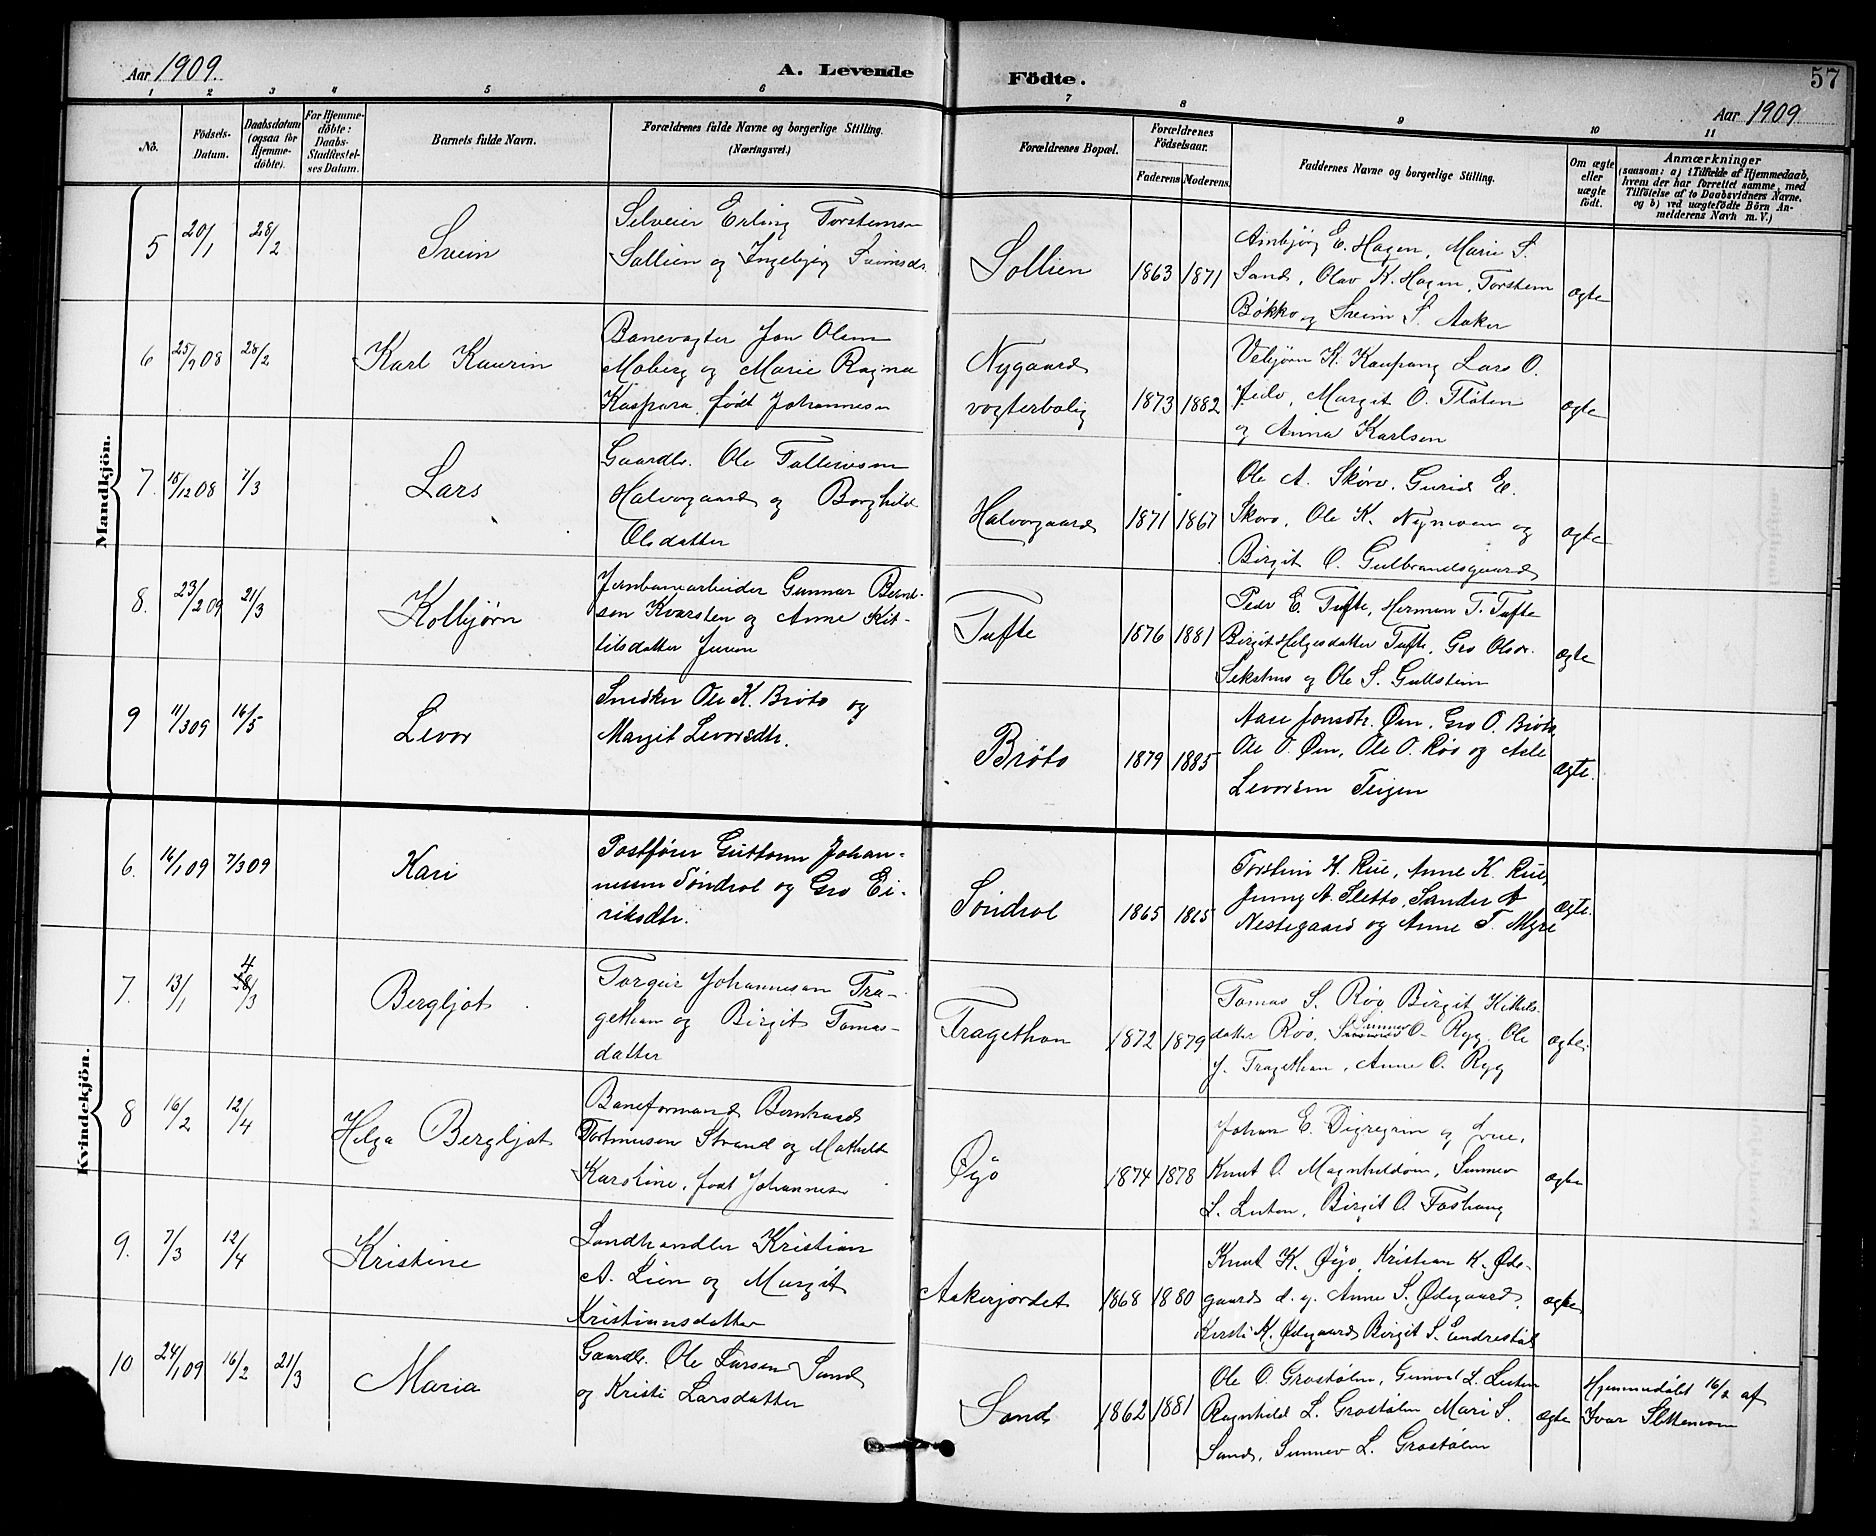 Aar 1909.
A. Levende
Födte.
57
Aar 1909
1 2 3 4 5 6 7 8 9 10 11
No.
Födsels-Datum.
Daabsdatum (ogsaa for Hjemme-döbte).
For Hjemme-döbte: Daabs-Stadfæstel-ses Datum.
Barnets fulde Navn.
Forældrenes fulde Navne og borgerlige Stilling. (Næringsvei.)
Forældrenes Bopæl.
Forældrenes Födselsaar.
Faderens. Moderens.
Faddernes Navne og borgerlige Stilling.
Om ægte eller uægte födt.
Anmærkninger
(saasom: a) i Tilfælde af Hjemmedaab,
hvem der har forrettet samme, med
Tilföielse af to Daabsvidners Navne.
og b) ved uægtefödte Börn An-
melderens Navn m. V.)
Mandkjön.
5 20/1 28/2 Svein
Selveier Erling Torsteinsn
Sollien og Ingebjørg Sveinsdr.
Sollien 1863 1871
Ambjørg E. Hagen, Marie S.
Sand, Olav K. Hagen, Torstein
Bøkko og Svein S. Aaker
ægte
6 25/9 08 28/2 Karl Kaurin
Banevogter Jon Olsen
Moberg og Marie Ragna
Kaspara, født Johannesn
Nygaard
vogterbolig 1873 1882
Vebjørn K. Kaupang Lars O.
Jeilo, Margit O. Fløten
og Anna Karlsen
ægte
7. 18/12 08 7/3 Lars
Gaardbr. Ole Tollevsen
Halvorgaard og Borghild
Olsdatter
Halvorgaard 1871 1867
Ole A. Skøro, Gurid E.
Skøro, Ole K. Nymoen og
Birgit O. Gulbrandsgaard
ægte
8. 23/2 09 21/3 Kolbjørn
Jernbanearbeider Gunnar Bernt-
sen Kvarsten og Anne Kit-
tilsdatter Juven
Tufte 1876 1881
Peder E. Tufte, Herman T. Tufte
Birgit Helgesdatter Tufte, Gro Olsdr.
og Ole S. Gullstein
ægte
9 11/3 09 16/5 Levor
Snedker Ole K. Brøto og
Margit Levorsdtr.
Brøto 1879 1885
Aase Jonsdtr. Øen, Gro O. Brøto,
Ole O. Øen, Ole O. Røo og Asle
Levorsen Teigen
ægte.
Kvindekjön.
6. 14/1 09 7/3 09 Kari
Postfører Guttorm Johan-
nessen Søndrol og Gro Ei-
riksdtr.
Søndrol 1865 1865
Torstein H. Rue, Anne K. Rue,
Jenny A. Sletto, Sander A
Nestegaard og Anne T. Myre
Ægte.
7. 13/1 4/3 Bergljot
Torgeir Johannesen Tra-
gethon og Birgit Tomas-
datter
Tragethon 1872 1879
Tomas S. Røo, Birgit Kittils-
datter Røo, Sunnev O. Ryg, Ole
J. Tragethon, Anne O. Ryg
ægte
8 16/2 12/4 Helga Bergljot
Baneformand Bernhard
Strand og Mathilde
Karoline, født Johannesn
Øyo 1874 1878
Johan E. Digregrin og frue,
Knut O. Magnhildøen, Sunnev
L. Linton, Birgit O. Foshaug
ægte
9. 7/3 12/4 Kristine
Landhandler Kristian
A. Lien og Margit
Kristiansdatter
Aakerjordet 1868 1880
Knut K. Øyo, Kristian K. Øde-
gaard d. y. Anne S. Ødegaard,
Kersti K. Ødegaard Birgit S. Endrestøl
ægte
10 24/1 09 16/2 21/3 Maria
Gaardbr. Ole Larsen Sand
og Kristi Larsdatter
Sand 1862 1881
Ole O. Grostølen, Gunvor L. Linton
Ragnhild L. Grostølen Mari S.
Sand, Sunnev L. Grostølen
Ægte
Hjemmedøbt 16/2 af
Ivar Slettemoen